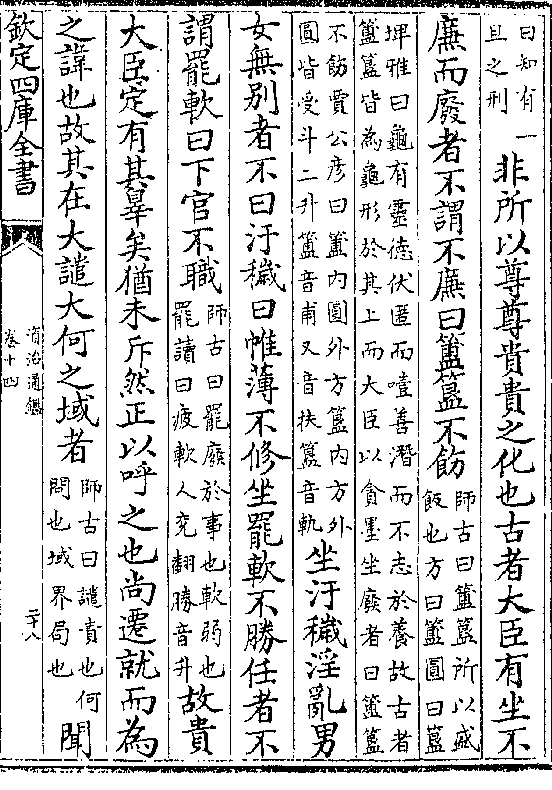 曰知有一
且之刑
非所以尊尊貴貴之化也古者大臣有坐不
廉而廢者不謂不廉曰簠簋不飭
師古曰簠簋所以盛
飯也方曰簠圓曰簋
埤雅曰龜有靈德伏匿而噎善潛而不志於養故古者
簠簋皆為龜形於其上而大臣以貪墨坐廢者曰簠簋
不飭賈公彦曰簠内圓外方簋内方外
圓皆受斗二升簠音甫又音扶簋音軌
坐汙穢淫亂男
女無别者不曰汙穢曰帷薄不修坐罷軟不勝任者不
謂罷軟曰下官不職
師古曰罷廢於事也軟弱也
罷讀曰疲軟人兖翻勝音升
故貴
大臣定有其辠矣猶未斥然正以呼之也尚遷就而為
之諱也故其在大譴大何之域者
師古曰譴責也何
問也域界局也
聞
欽定四庫全書
資治通鑑
卷十四
二十八